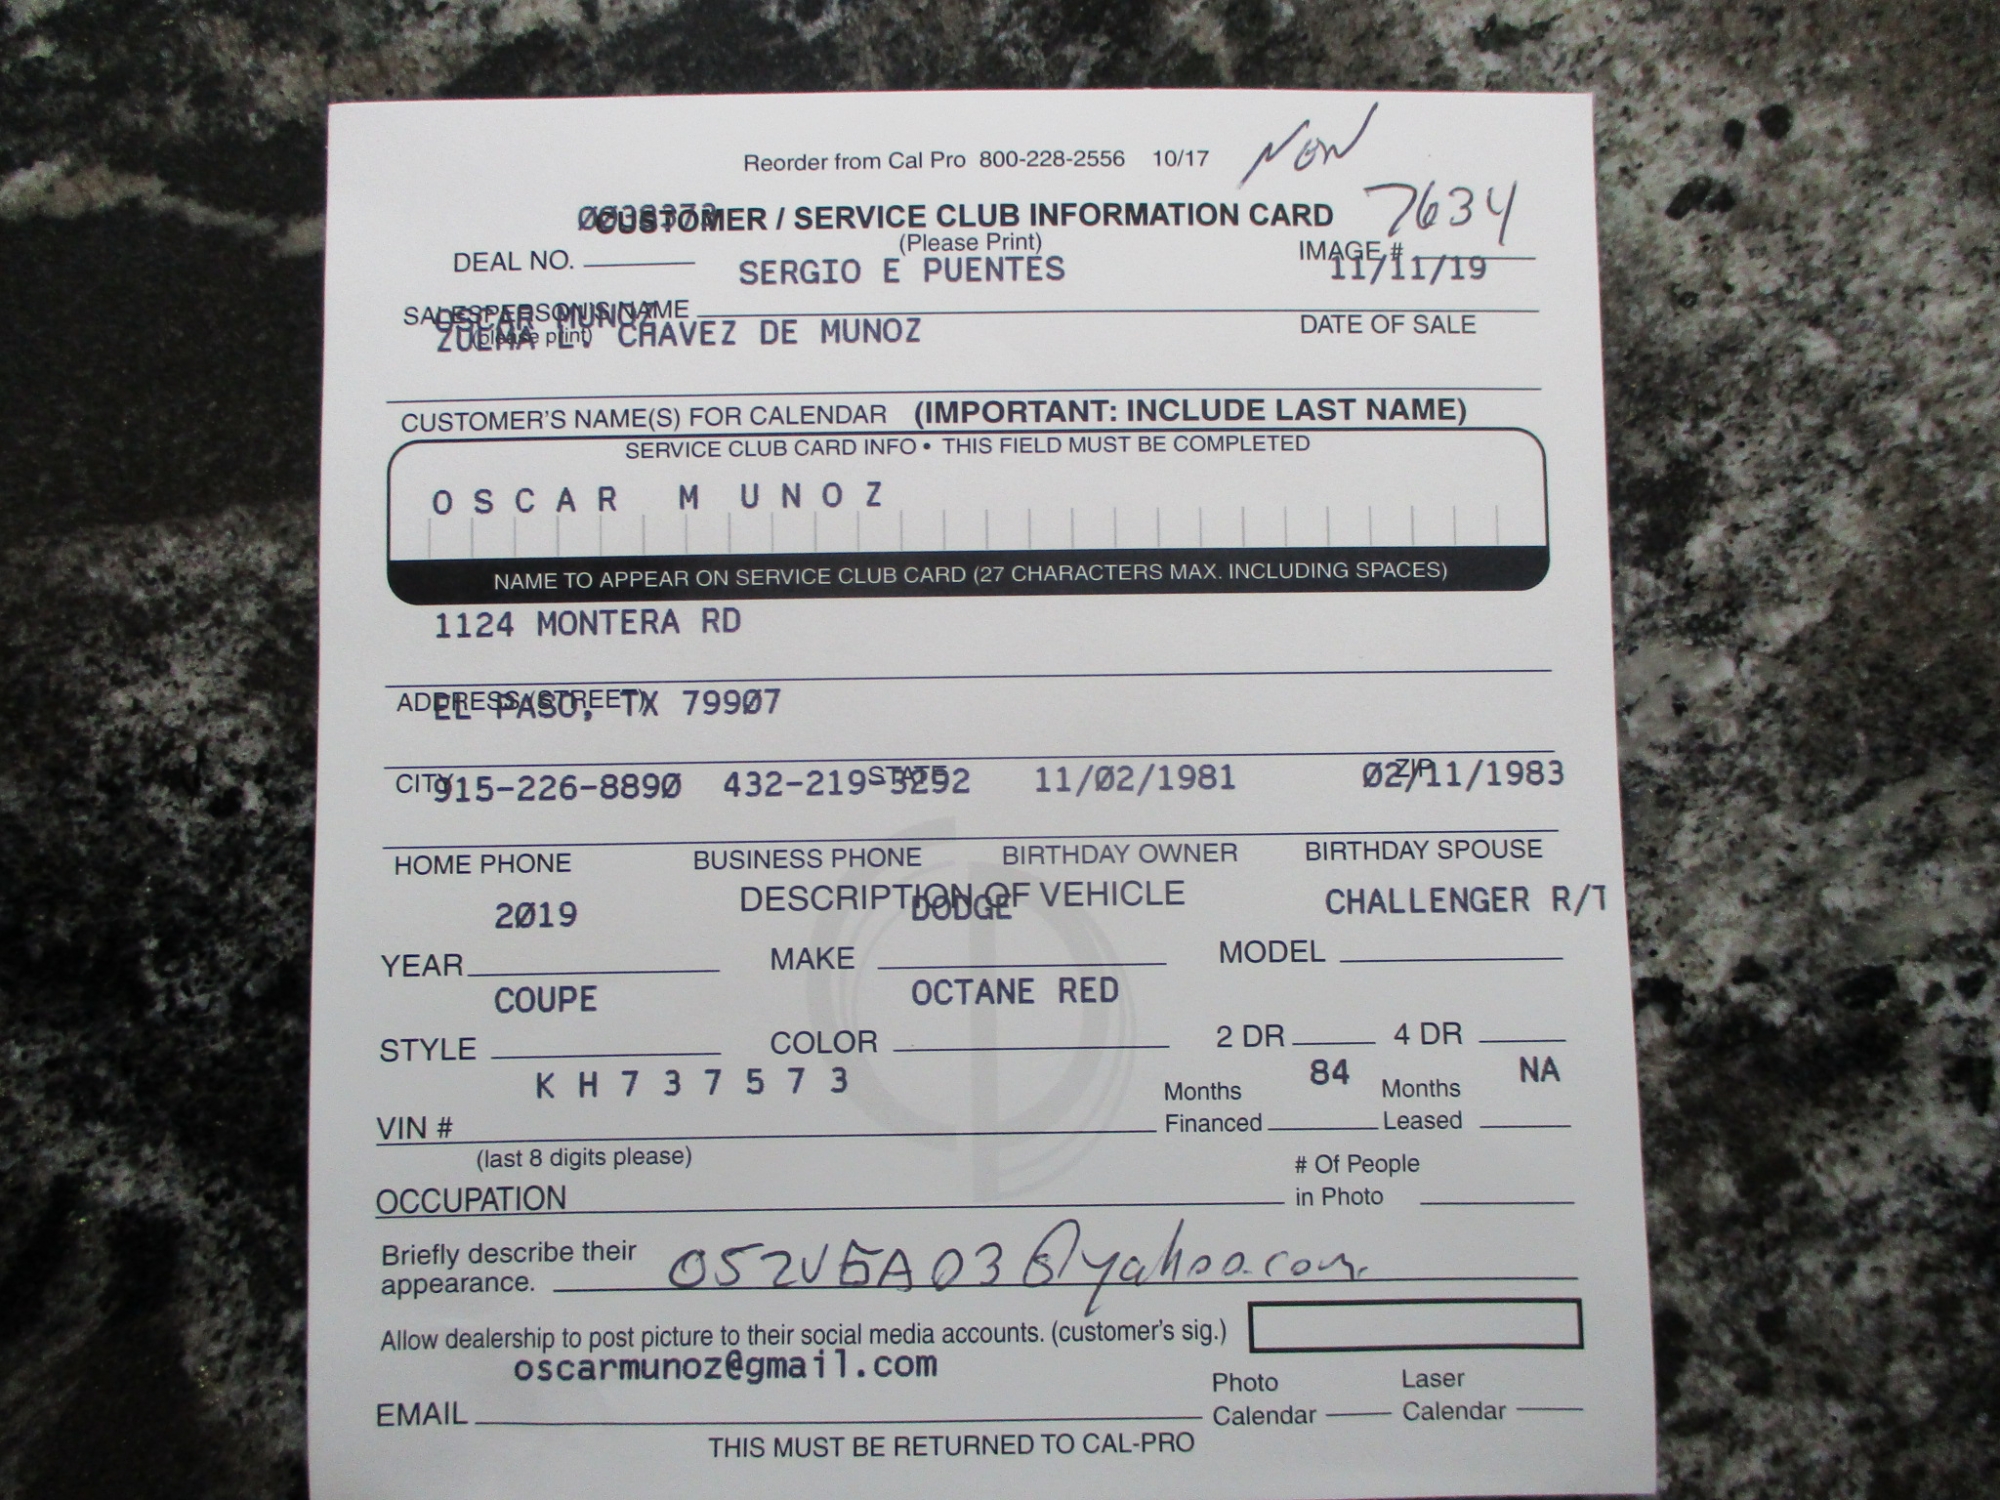 Reorder from Cal Pro 800-228-2556 10/17
7634
CUSTOMER / SERVICE CLUB INFORMATION CARD
(Please Print)
DEAL NO. SERGIO E PUENTES IMAGE # 11/11/19
SALESPERSON'S NAME
OSCAR MUNOZ
(please print)
ZULMA L. CHAVEZ DE MUNOZ DATE OF SALE
CUSTOMER'S NAME(S) FOR CALENDAR (IMPORTANT: INCLUDE LAST NAME)
SERVICE CLUB CARD INFO • THIS FIELD MUST BE COMPLETED
OSCAR MUNOZ
NAME TO APPEAR ON SERVICE CLUB CARD (27 CHARACTERS MAX. INCLUDING SPACES)
1124 MONTERA RD
ADDRESS (STREET)
EL PASO, TX 79907
CITY STATE ZIP
915-226-8890 432-219-3292 11/02/1981 02/11/1983
HOME PHONE BUSINESS PHONE BIRTHDAY OWNER BIRTHDAY SPOUSE
DESCRIPTION OF VEHICLE
2019 DODGE CHALLENGER R/T
YEAR MAKE MODEL
COUPE OCTANE RED
STYLE COLOR 2 DR 4 DR
KH737573 84 NA
VIN # Months Financed Months Leased
(last 8 digits please)
OCCUPATION # Of People in Photo
Briefly describe their
appearance.
Allow dealership to post picture to their social media accounts. (customer's sig.)
oscarmunoz@gmail.com
EMAIL Photo Calendar Laser Calendar
THIS MUST BE RETURNED TO CAL-PRO